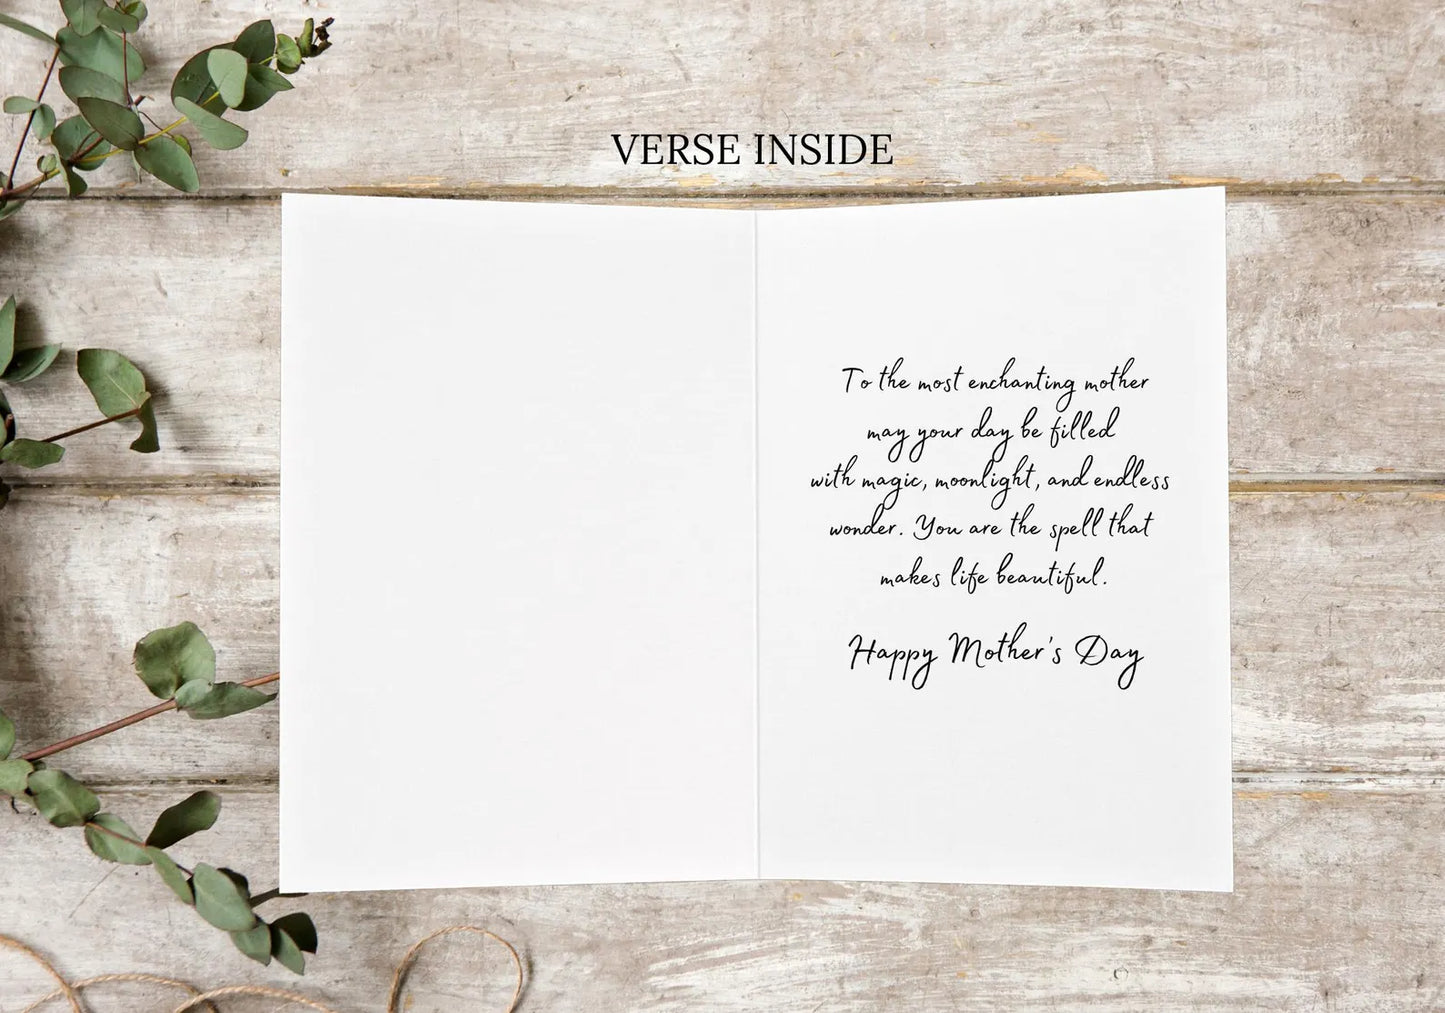 VERSE INSIDE
To the most enchanting mother
may your day be filled
with magic, moonlight, and endless
wonder. You are the spell that
makes life beautiful.
Happy Mother's Day